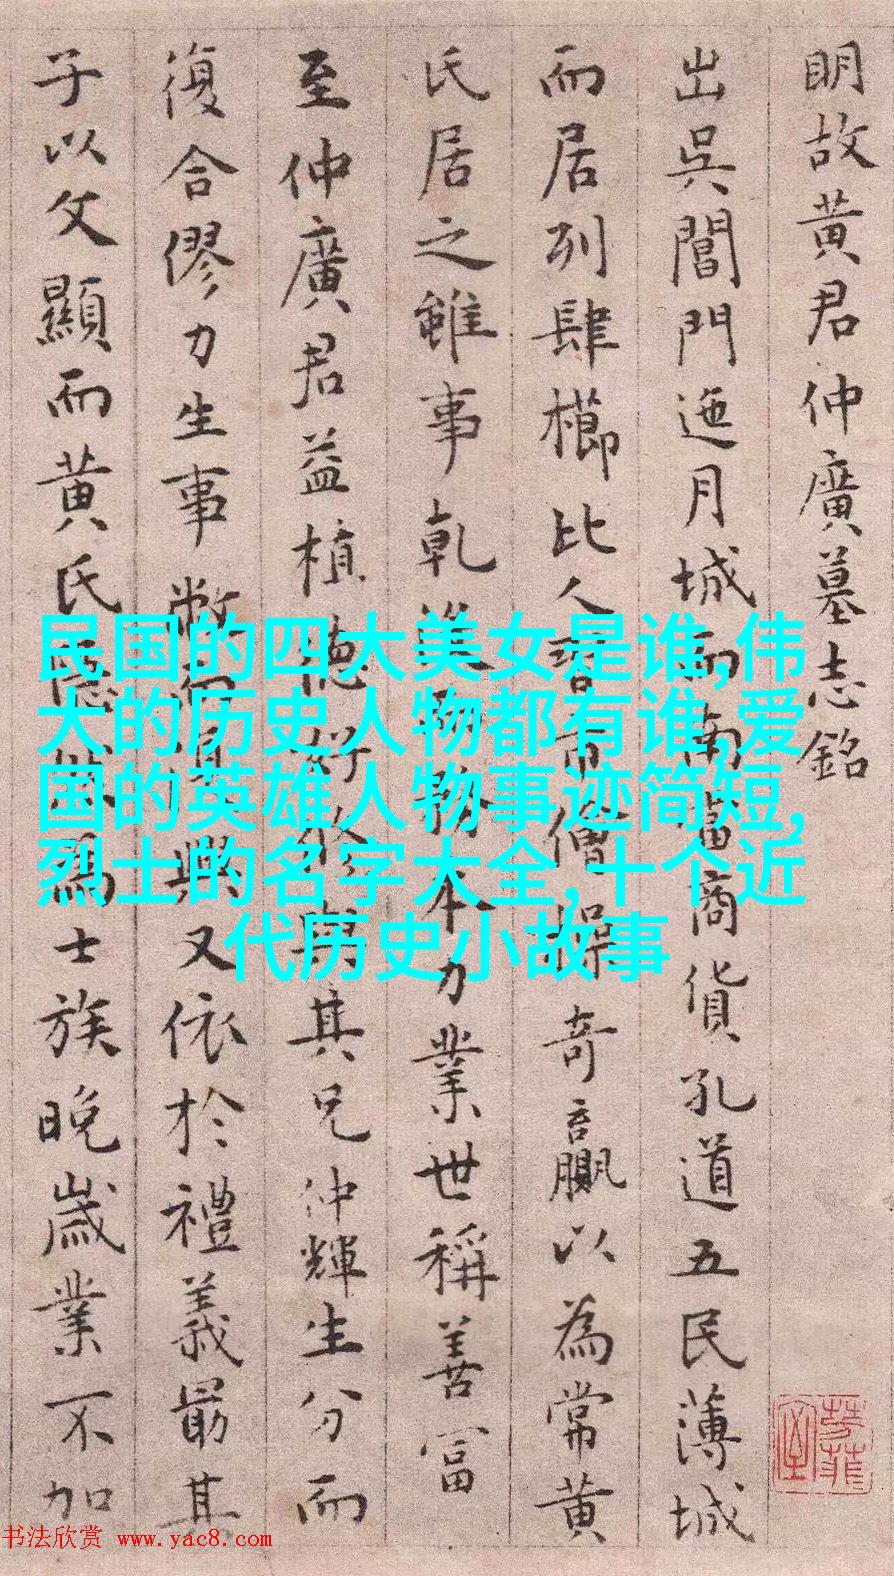 明故黄君仲廣墓志銘
出吳閶門迤月城而南富商貨孔道五民薄城
而居列肆櫛比人習市儈操奇贏以為常黄
氏居之雖事乾進而務本力業世稱善富
至仲廣君益植德好修與其兄仲輝生分而
復合僇力生事幣負與又依於禮義最其
子以文顯而黄氏為士族晚歲業不加
民国的四大美女是谁,伟
大的历史人物都有谁,爱
国的英雄人物事迹简短,
烈士的名字大全,十个近
代历史小故事
书法欣赏 www.yac8.com